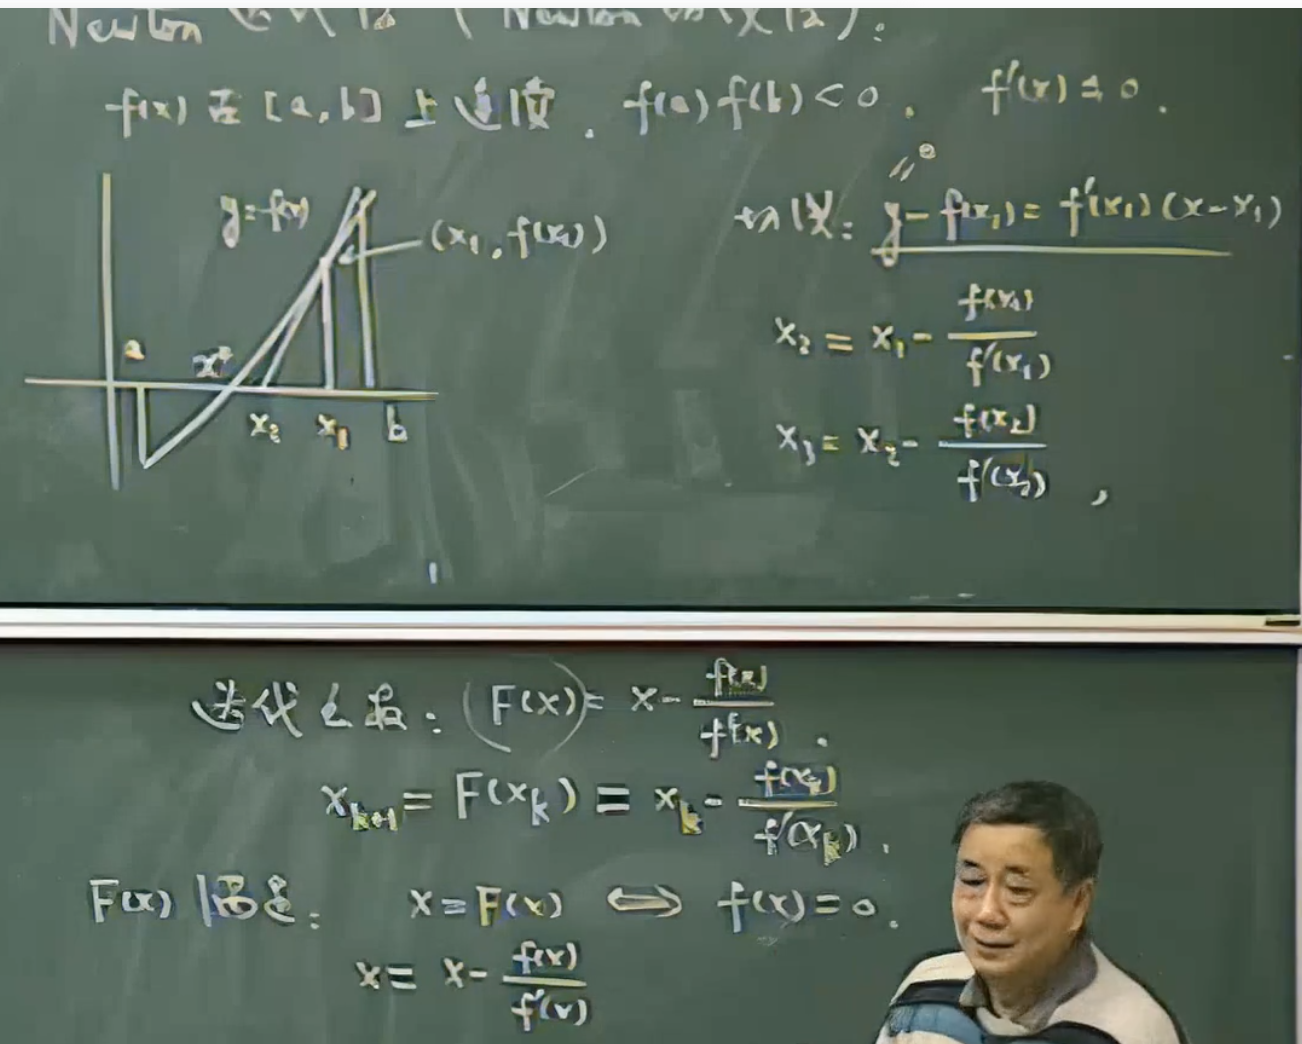 Newton 迭代法 (Newton 切线法):
f(x) 在 [a,b] 上连续. f(a)f(b)<0. f'(x)≠0.
y=f(x)
(x₁, f(x₁))
a x* x₂ x₁ b
0
"
切线: y-f(x₁)=f'(x₁)(x-x₁)
x₂ = x₁ - f(x₁)/f'(x₁)
x₃ = x₂ - f(x₂)/f'(x₂) ,
迭代公式: F(x) = x - f(x)/f'(x) .
x_{k+1} = F(x_k) = x_k - f(x_k)/f'(x_k) .
F(x) 满足: x=F(x) ⟺ f(x)=0.
x = x - f(x)/f'(x)